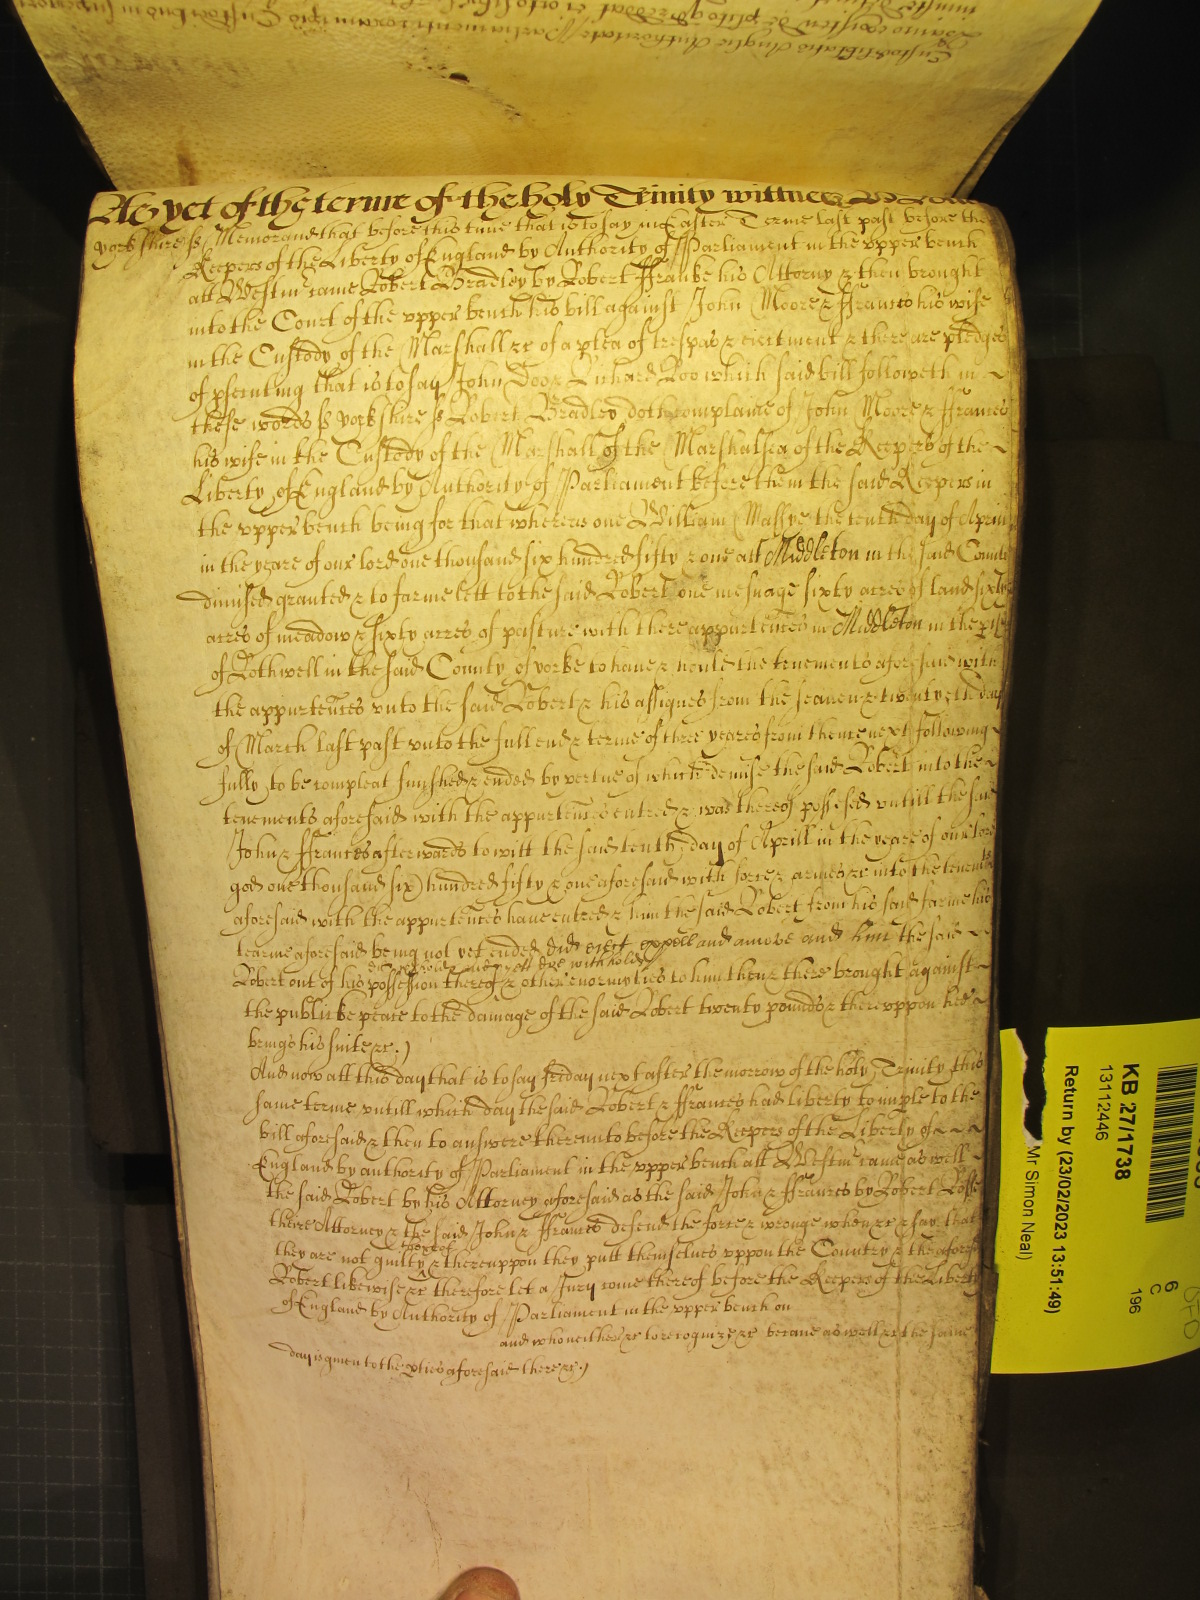 As yet of the terme of the holy Trinity wittnes
yorkshire ss Memorand that before this time that is to say in Easter Terme last past before the
Keepers of the Liberty of England by Authority of Parliament in the vpper bench
att Westmr came Robert Bradley by Robert ffranke his Attorny & then brought
into the Court of the vpper bench his bill against John Moore & ffrances his wife
in the Custody of the Marshall &c of a plea of trespas & eiectment & there are pledges
of psecuting that is to say John Doo & Richard Roo which said bill followeth in
these words ss yorkshire ss Robert Bradley doth complaine of John Moore & ffrances
his wife in the Custody of the Marshall of the Marshalsea of the Keepers of the
Liberty of England by Authority of Parliament before them the said Keepers in
the vpper bench being for that whereas one William Massye the tenth day of Aprill
in the yeare of our lord one thousand six hundred fifty & one att Middleton in the said County
dimised granted & to farme lett to the said Robert one mesuage sixty acres of land sixty
acres of meadow & sixty acres of pasture with there appurtences in Middleton in the pish
of Rothwell in the said County of yorke to haue & hould the tenements aforesaid with
the appurtences vnto the said Robert & his assignes from the seauen & twentyeth day
of March last past vnto the full end & terme of three yeares from thence next following
fully to be compleat finished & ended by vertue of which demise the said Robert into the
tenements aforesaid with the appurtences entred & was thereof possesed vntill the said
John & ffrances afterwards to witt the said tenth day of Aprill in the yeare of our lord
god one thousand six hundred fifty & one aforesaid with force & armes &c into the tenemts
aforesaid with the appurtences haue entred & him the said Robert from his said farme his
tearme aforesaid being not yet ended did eiect expell and amove and him the said
Robert out of his possession thereof & other enormyties to him then & there brought against
the publicke peace to the damage of the said Robert twenty pounds & therevppon hee
brings his suite &c.)
And now att this day that is to say friday next after the morrow of the holy Trinity this
same terme vntill which day the said Robert & ffrances had liberty to imple to the
bill aforesaid & then to answere therevnto before the Keepers of the Liberty of
England by authority of Parliament in the vpper bench att Westmr came as well
the said Robert by his Attorney aforesaid as the said John & ffrances by Robert
theire Attorney & the said John & ffrances defend the force & wronge when &c & say that
they are not guilty thereof & therevppon they putt themselues vppon the Country & the aforesd
Robert likewise &c therefore let a Jury come thereof before the Keepers of the Liberty
of England by Authority of Parliament in the vpper bench on
and who neither &c to recognize &c because as well &c the same
day is giuen to the pties aforesaid there &c.)
KB 27/1738
13112446
Return by (23/02/2023 13:51:49)
Mr Simon Neal)
6
C
196